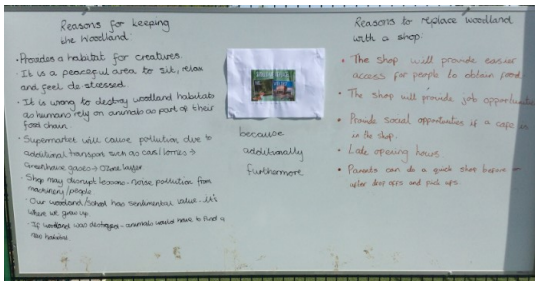 Reasons for keeping
the woodland:
• Provides a habitat for creatures.
• It is a peaceful area to sit, relax
and feel de-stressed.
• It is wrong to destroy woodland habitats
as humans rely on animals as part of their
food chain.
• Supermarket will cause pollution due to
additional transport such as cars/lorries →
greenhouse gases → Ozone layer
• Shop may disrupt lessons - noise pollution from
machinery/people
• Our woodland/school has sentimental value - it's
where we grew up.
• If woodland was destroyed - animals would have to find a
new habitat
because
additionally
furthermore
Reasons to replace woodland
with a shop:
• The shop will provide easier
access for people to obtain food.
• The shop will provide job opportunities
• Provide social opportunities if a cafe is
in the shop.
• Late opening hours
• Parents can do a quick shop before
after drop offs and pick ups.